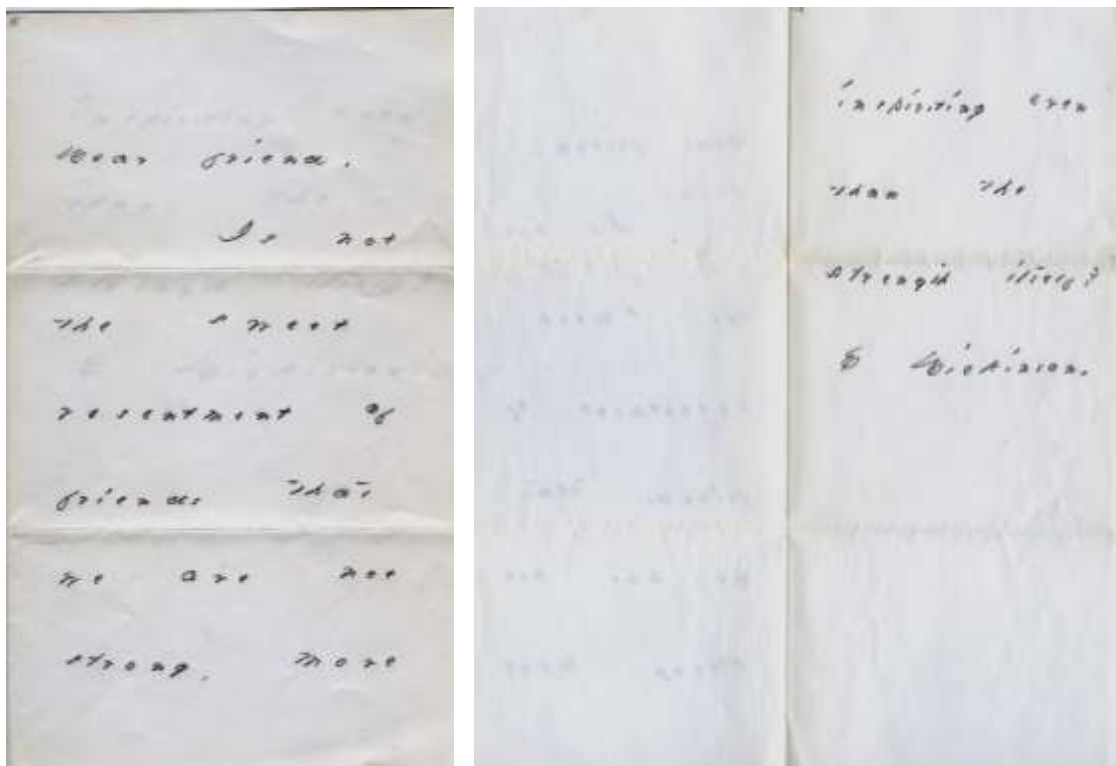 Dear friend.
Is not
the sweet
resentment of
friends that
we are not
strong, more
inspiriting even
than the
strength itself?
E Dickinson.